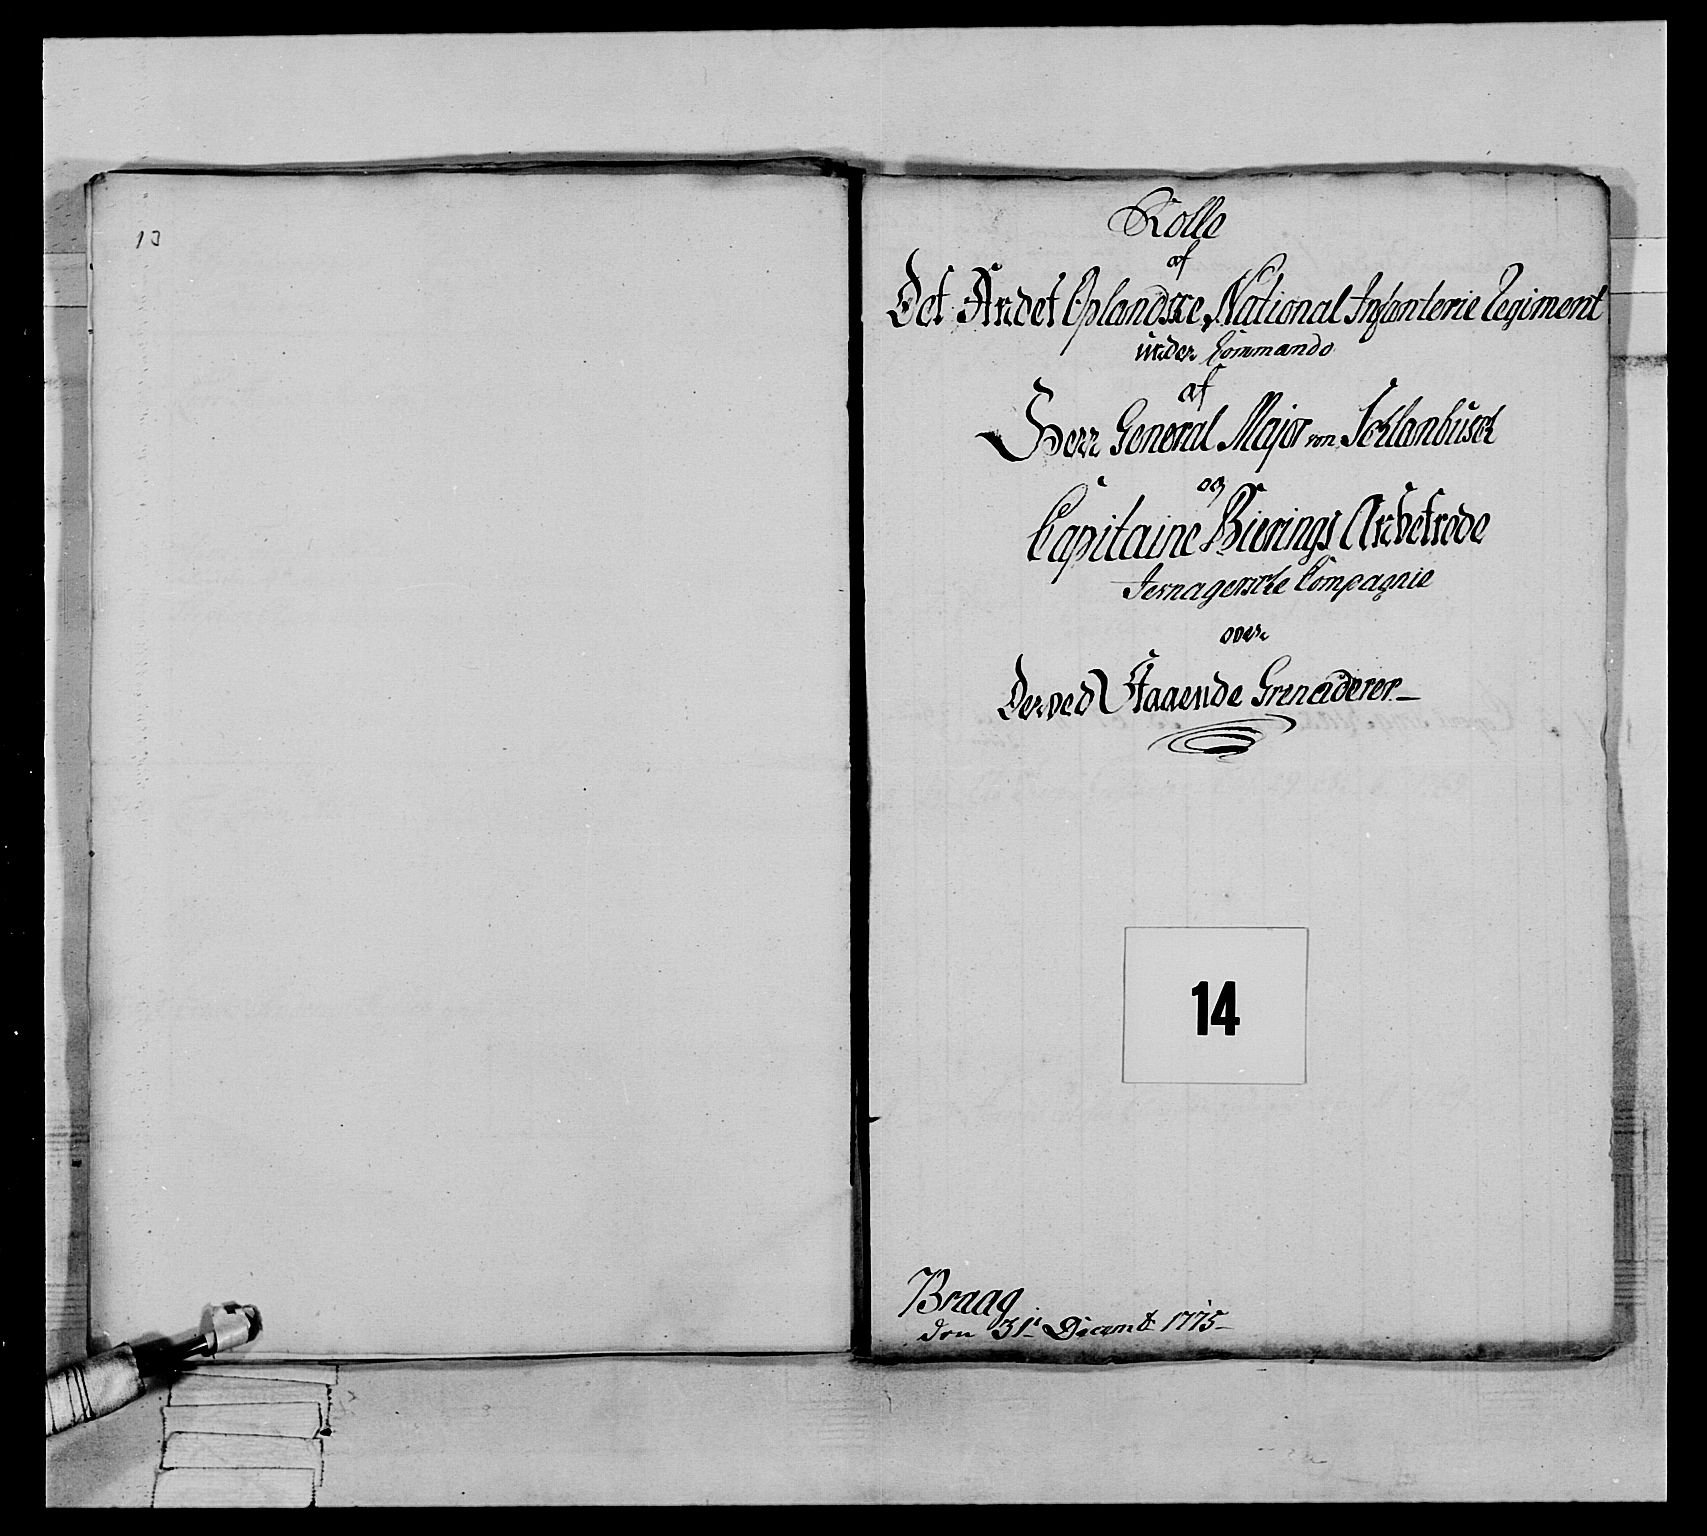 13
Rolle
af
Det Andet Oplandske National Infanterie Regiment
under Commando
af
Herr General Major von Schlanbusch
og
Capitaine Bierings Anbetroede
Jernagerske Compagnie
over
Derved Staaende Grenaderer
14
Braag
den 31te Decembr 1775